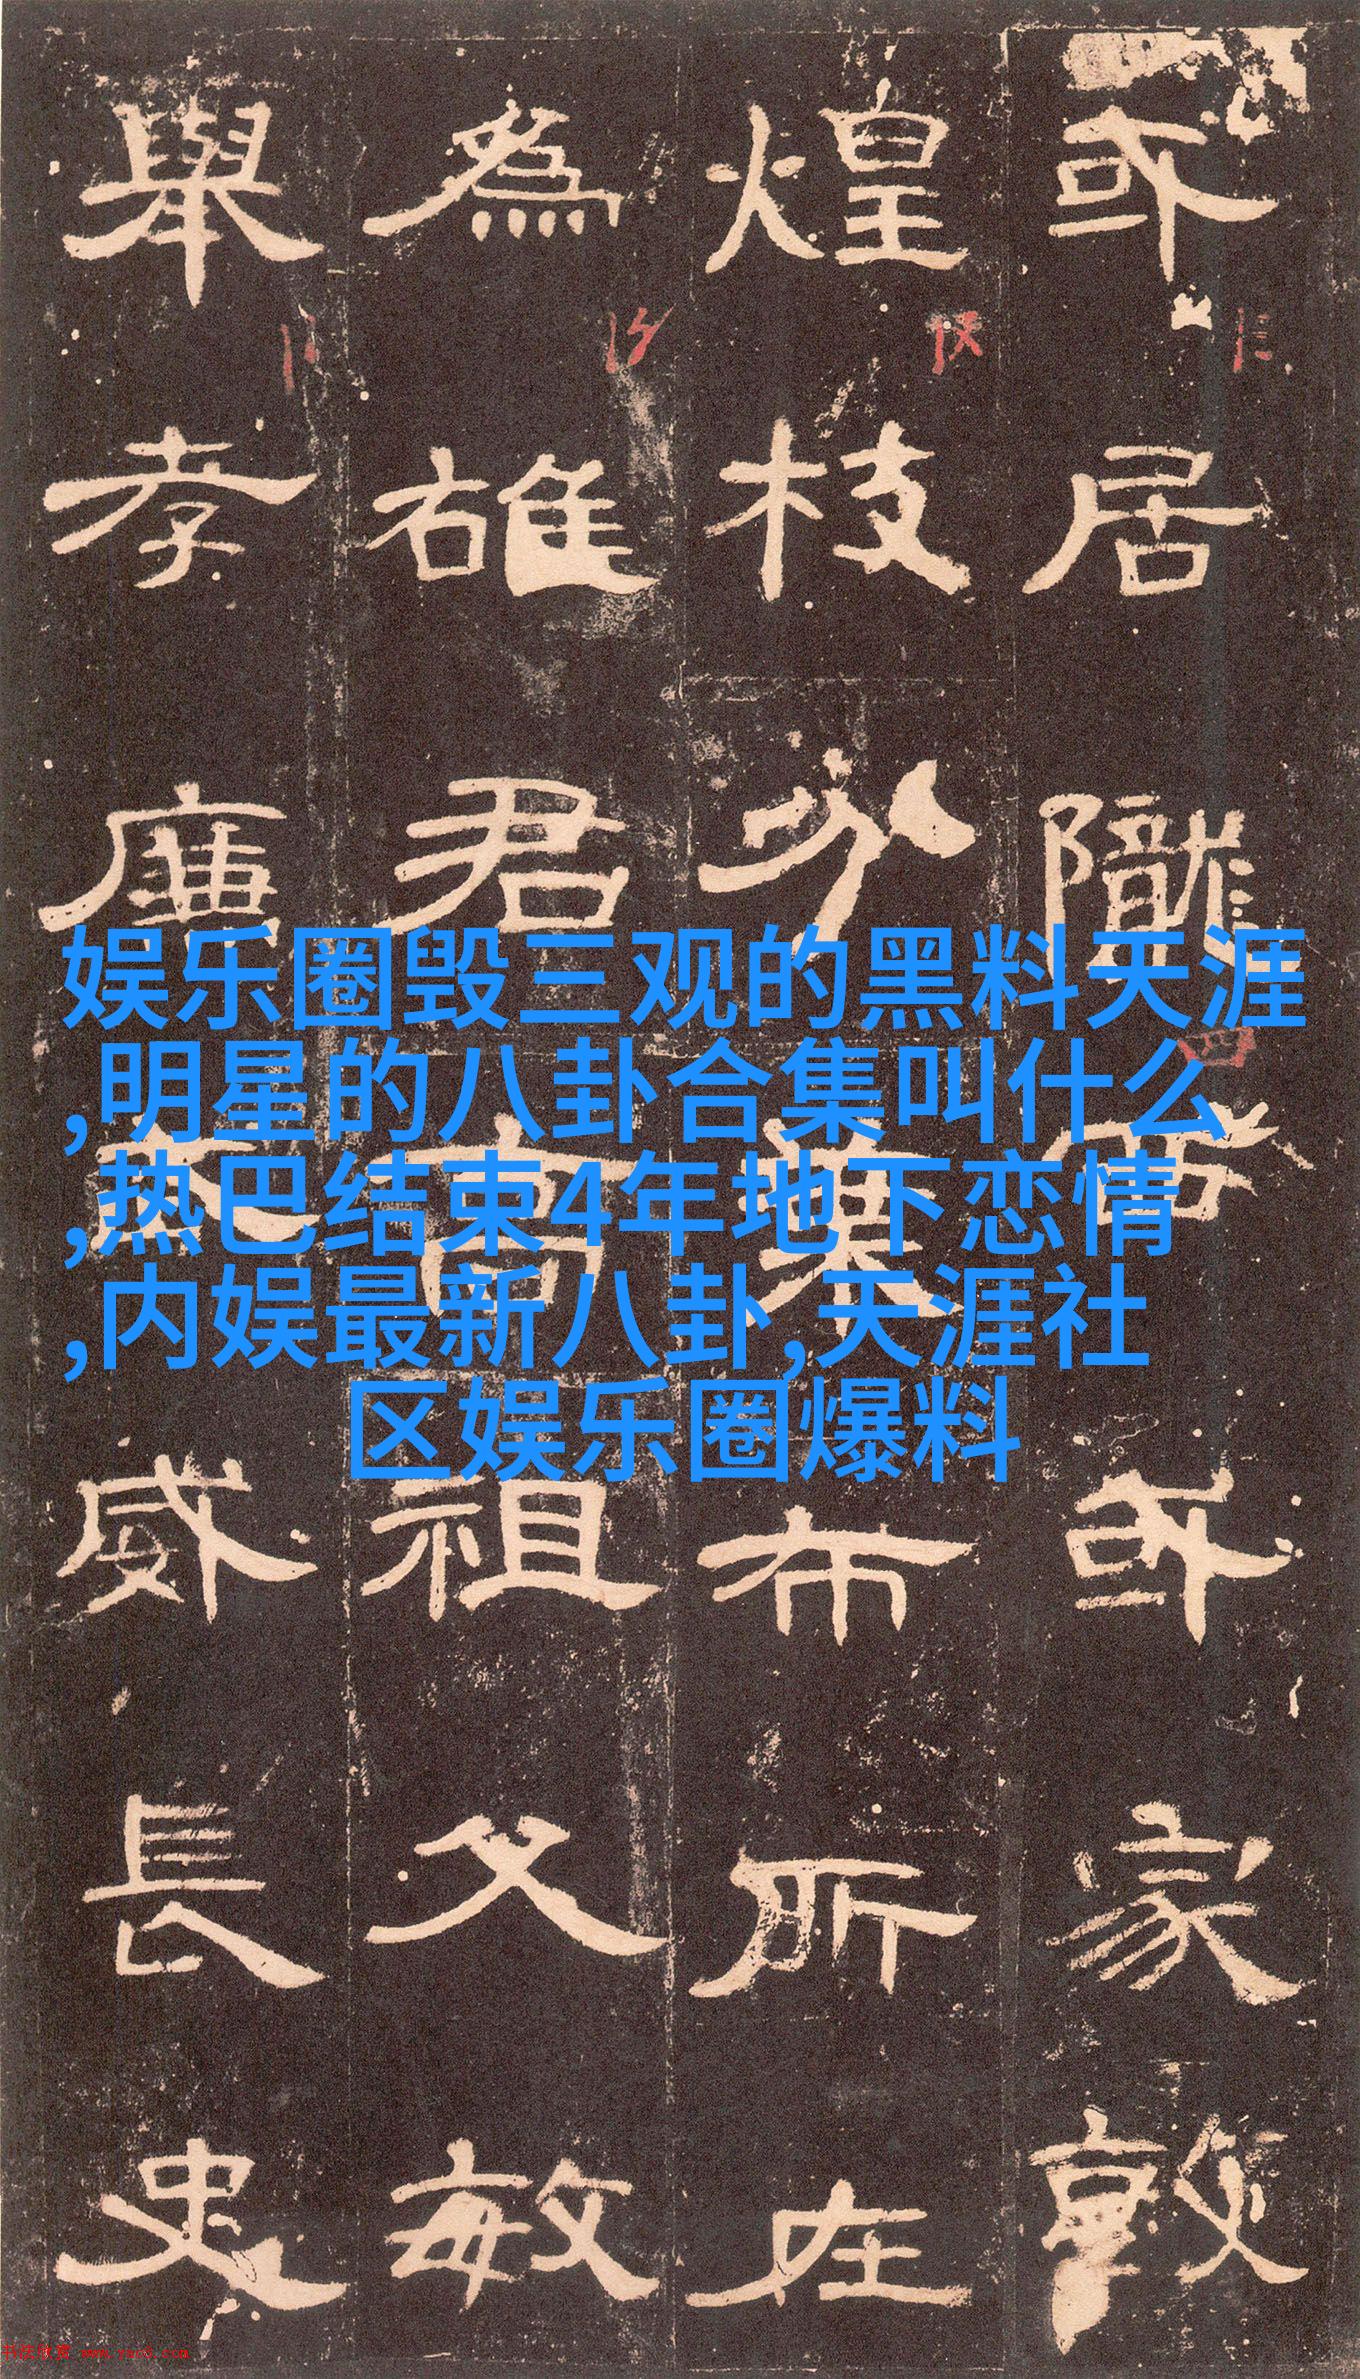 或居隴西或家敦
煌枝分葉布所在
為雄君高祖父敏
舉孝廉武威長史
娱乐圈毁三观的黑料天涯
,明星的八卦合集叫什么
,热巴结束4年地下恋情
,内娱最新八卦,天涯社
区娱乐圈爆料
书法欣赏 www.yac8.com